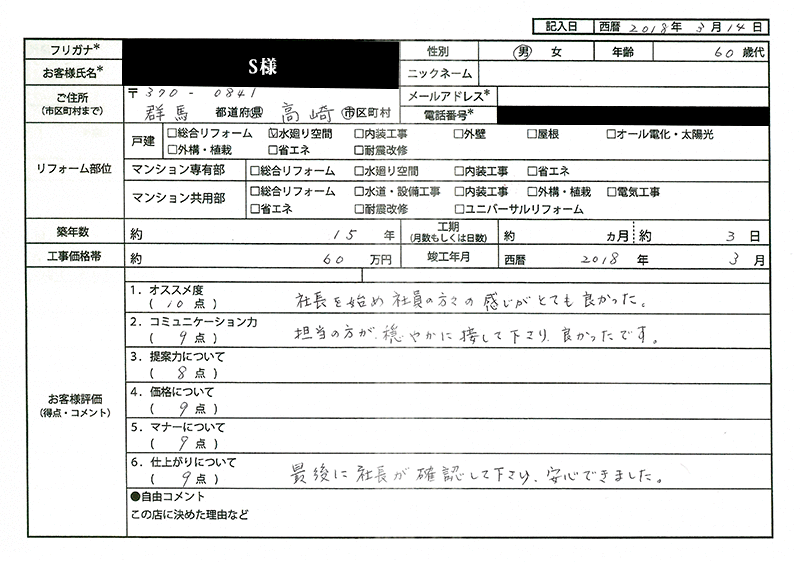 記入日 西暦 2018年 3月14日
フリガナ*
お客様氏名* S様
性別 男 女 年齢 60歳代
ニックネーム
ご住所
(市区町村まで)
〒370-0841
群馬 都道府県 高崎 市区町村
メールアドレス*
電話番号*
リフォーム部位
戸建 □総合リフォーム ☑水廻り空間 □内装工事 □外壁 □屋根 □オール電化・太陽光
□外構・植栽 □省エネ □耐震改修
マンション専有部 □総合リフォーム □水廻り空間 □内装工事 □省エネ
マンション共用部 □総合リフォーム □水道・設備工事 □内装工事 □外構・植栽 □電気工事
□省エネ □耐震改修 □ユニバーサルリフォーム
築年数 約 15 年
工期
(月数もしくは日数)
約 ヵ月 約 3 日
工事価格帯 約 60 万円 竣工年月 西暦 2018 年 3 月
お客様評価
(得点・コメント)
1．オススメ度
( 10 点 ) 社長を始め社員の方々の感じがとても良かった。
2．コミュニケーション力
( 9 点 ) 担当の方が、穏やかに接して下さり、良かったです。
3．提案力について
( 8 点 )
4．価格について
( 9 点 )
5．マナーについて
( 9 点 )
6．仕上がりについて
( 9 点 ) 最後に社長が確認して下さり、安心できました。
●自由コメント
この店に決めた理由など